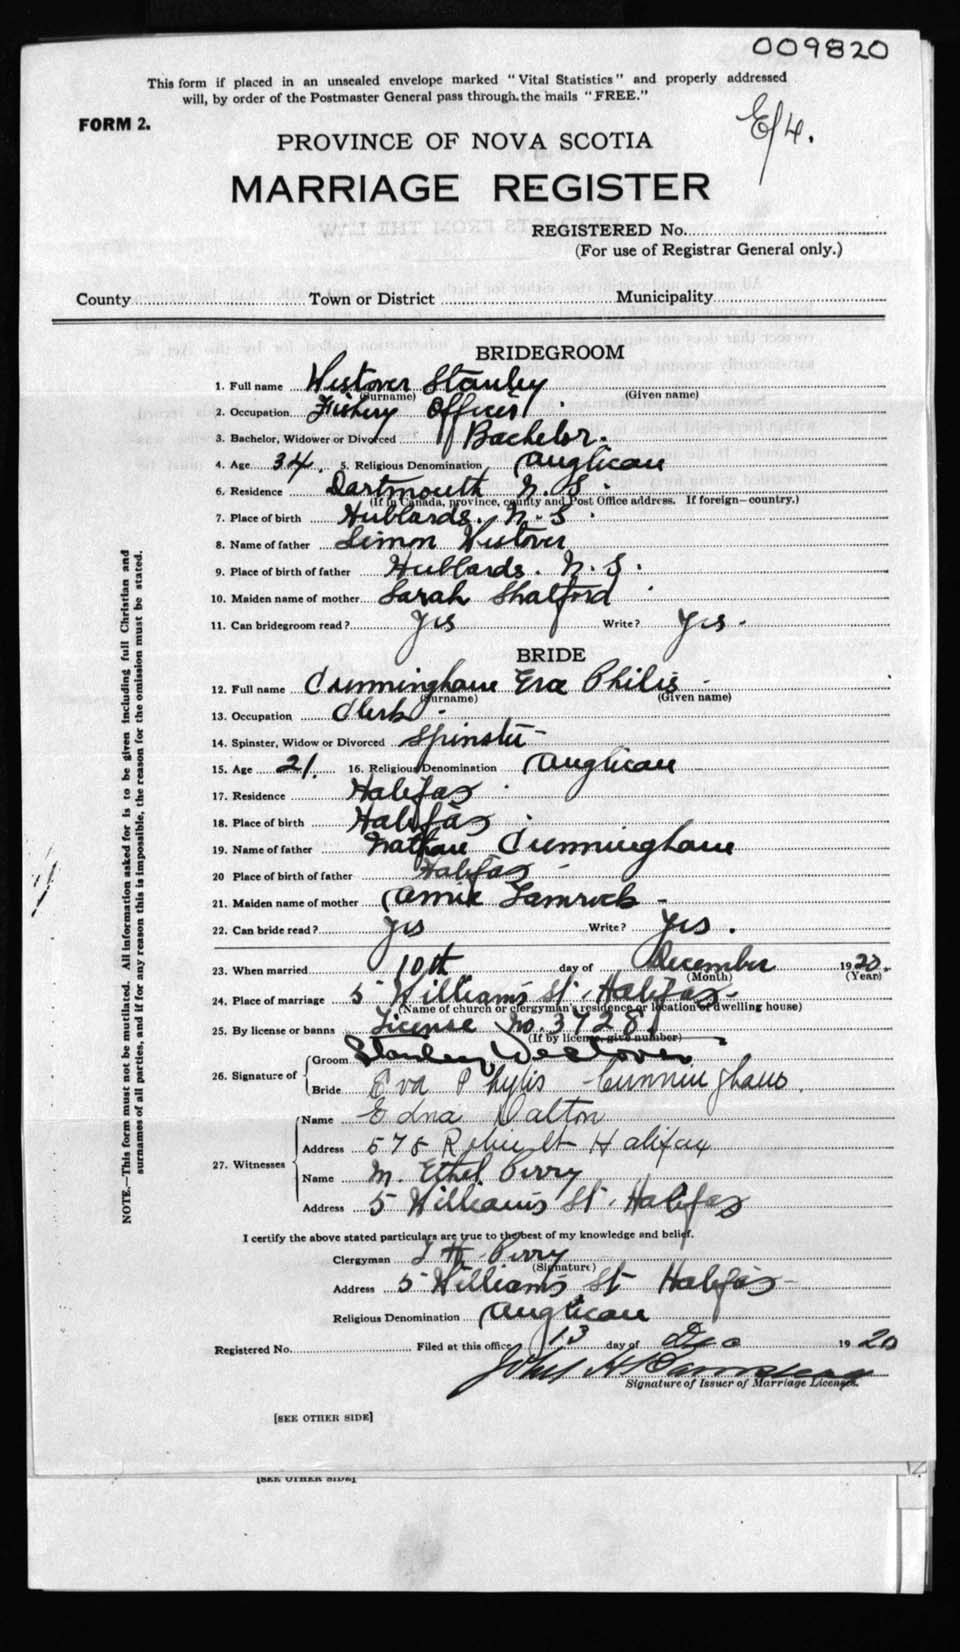 009820
This form if placed in an unsealed envelope marked "Vital Statistics" and properly addressed
will, by order of the Postmaster General pass through the mails "FREE."
FORM 2.
E/4.
PROVINCE OF NOVA SCOTIA
MARRIAGE REGISTER
REGISTERED No.
(For use of Registrar General only.)
County Town or District Municipality
BRIDEGROOM
1. Full name Westover Stanley
(Surname) (Given name)
2. Occupation Fishery Officer
3. Bachelor, Widower or Divorced Bachelor.
4. Age 34. 5. Religious Denomination Anglican
6. Residence Dartmouth N.S.
(If in Canada, province, county and Post Office address. If foreign—country.)
7. Place of birth Hubbards. N.S.
8. Name of father Simon Westover
9. Place of birth of father Hubbards. N.S.
10. Maiden name of mother Sarah Shatford
11. Can bridegroom read? Yes Write? Yes.
BRIDE
12. Full name Cunningham Eva Philis
(Surname) (Given name)
13. Occupation Clerk
14. Spinster, Widow or Divorced Spinster
15. Age 21. 16. Religious Denomination Anglican
17. Residence Halifax
18. Place of birth Halifax
19. Name of father Nathan Cunningham
20 Place of birth of father Halifax
21. Maiden name of mother Annie
22. Can bride read? Yes Write? Yes.
23. When married 10th day of December 1920.
(Month) (Year)
24. Place of marriage 5 Williams St. Halifax
(Name of church or clergyman's residence or location of dwelling house)
25. By license or banns License No. 37288
(If by license, give number)
26. Signature of Groom Stanley Westover
Bride Eva Phylis Cunningham
27. Witnesses Name Edna Dalton
Address 575 Robie St Halifax
Name M. Ethel Perry
Address 5 Williams St. Halifax
I certify the above stated particulars are true to the best of my knowledge and belief.
Clergyman Perry
(Signature)
Address 5 Williams St Halifax
Religious Denomination Anglican
Registered No. Filed at this office 13 day of Dec 1920
John H
Signature of Issuer of Marriage Licenses.
[SEE OTHER SIDE]
[SEE OTHER SIDE]
NOTE.—This form must not be mutilated. All information asked for is to be given including full Christian and
surnames of all parties, and if for any reason this is impossible, the reason for the omission must be stated.